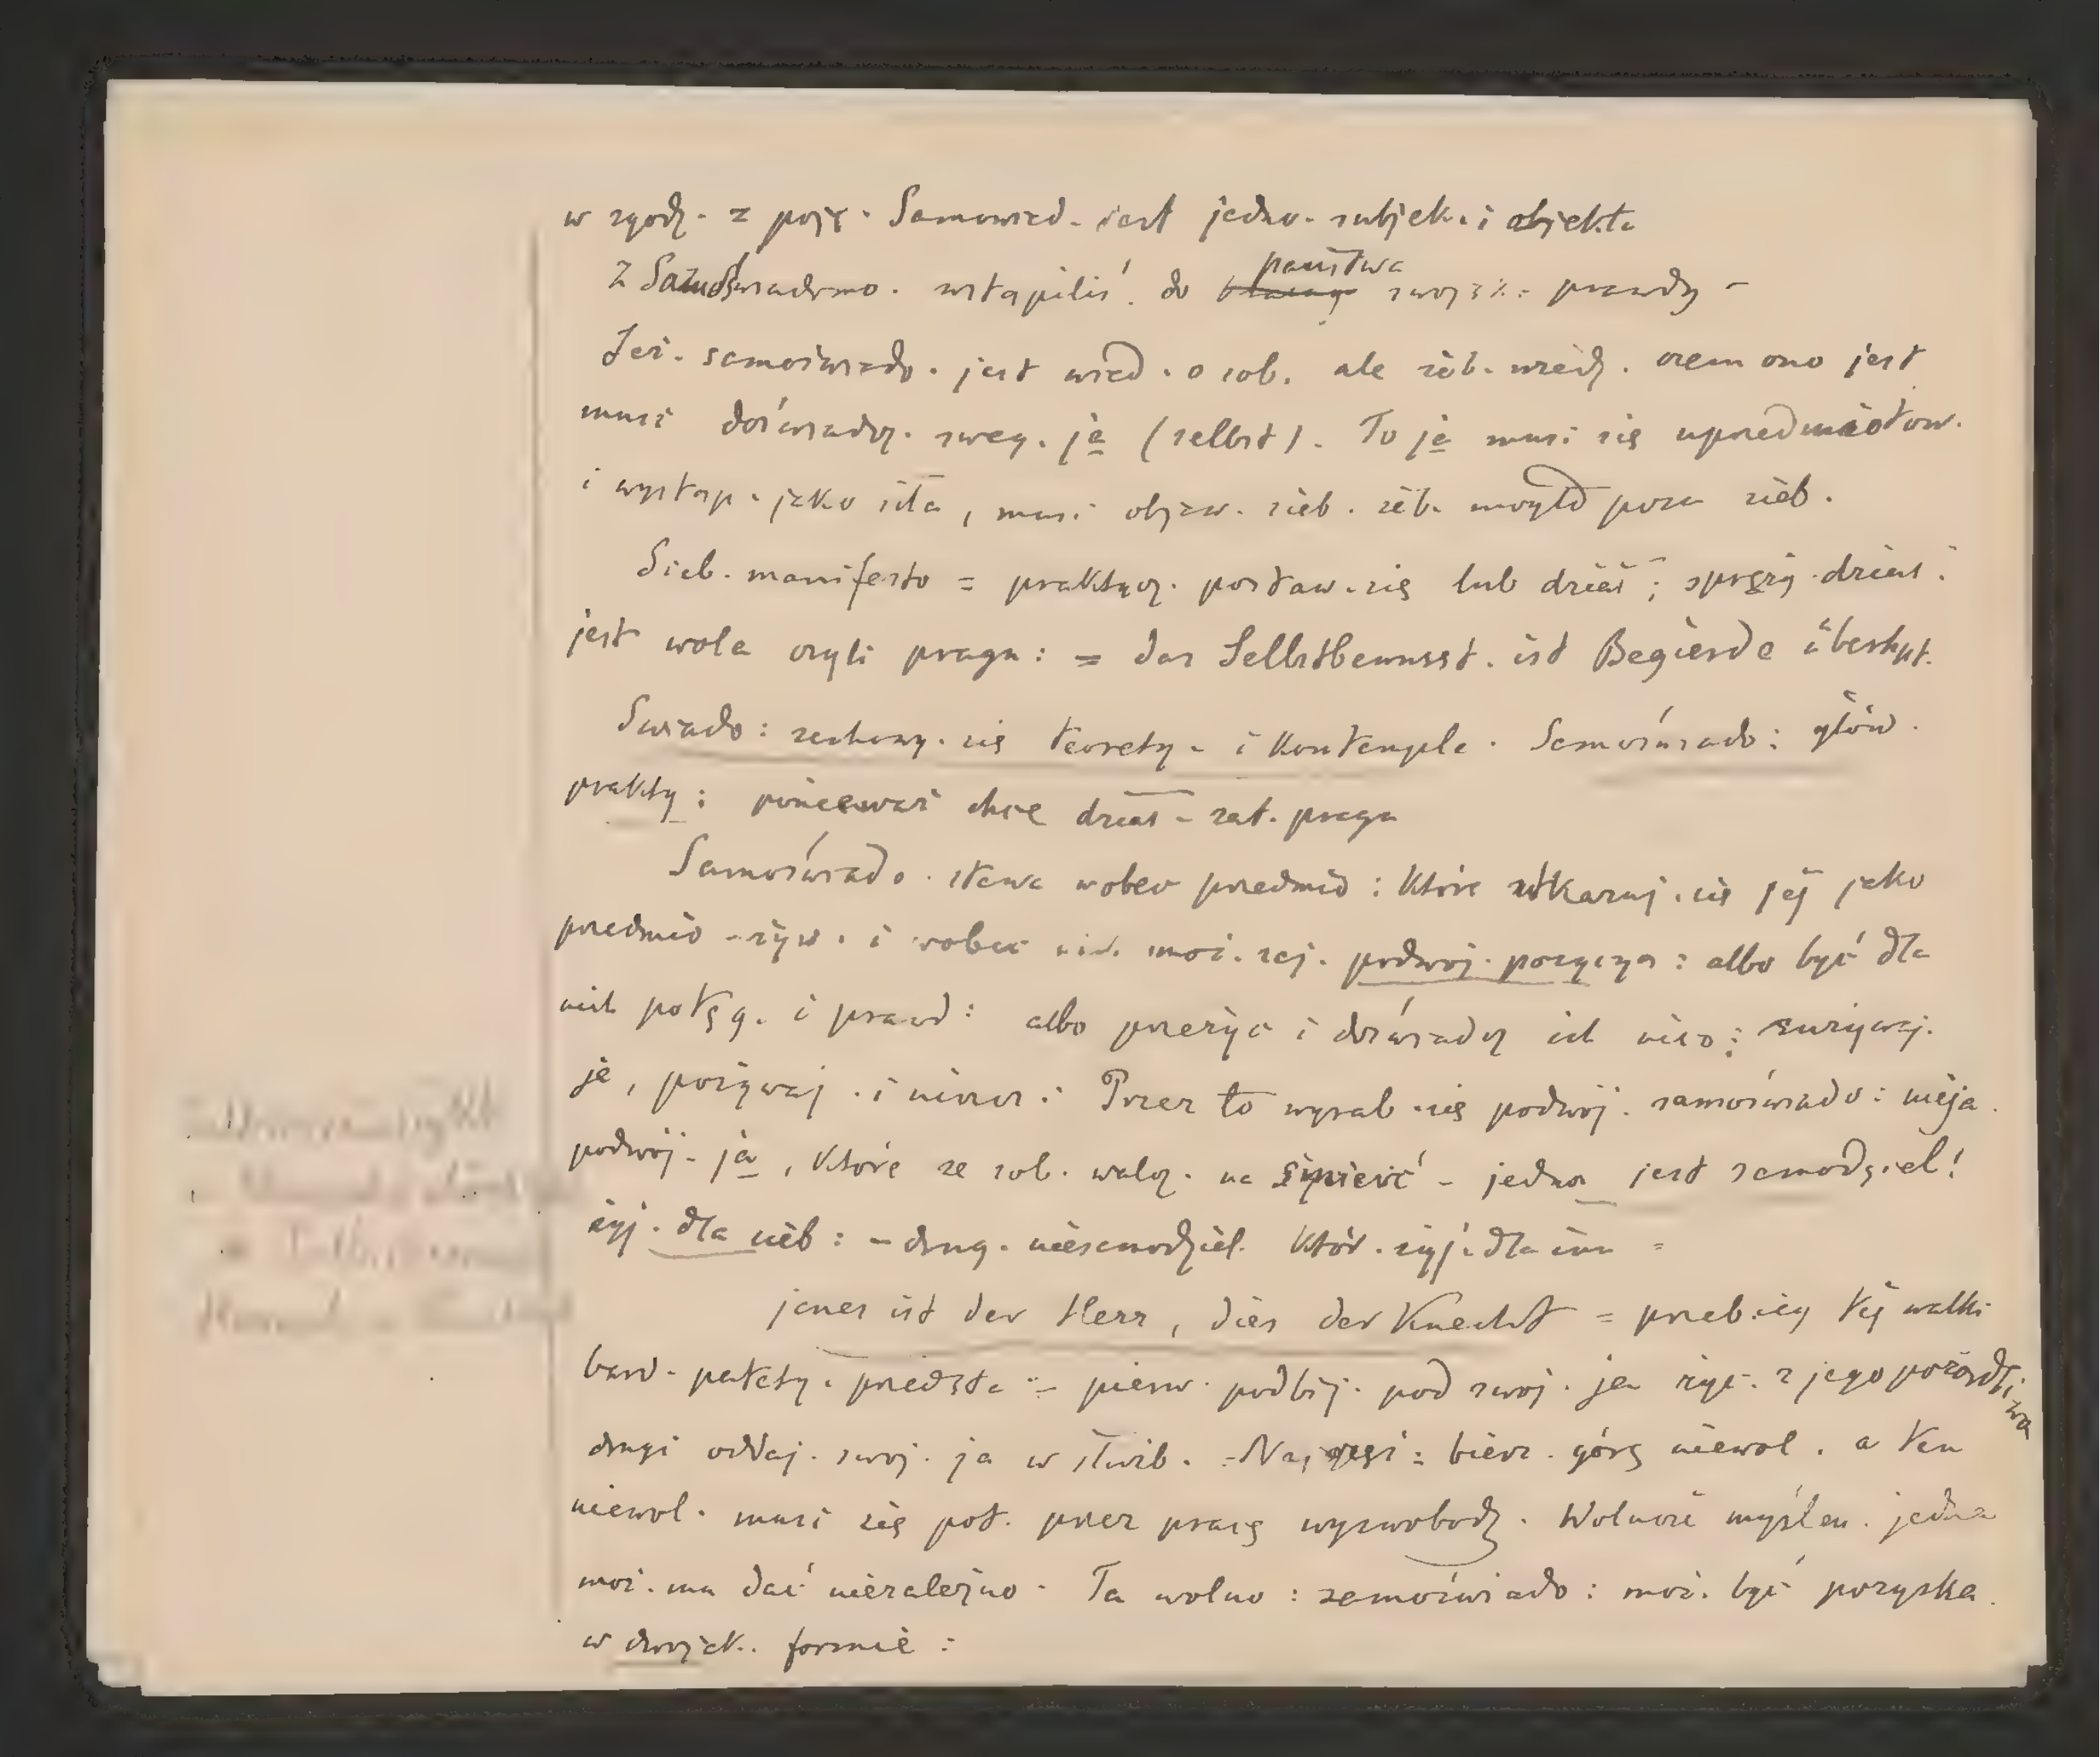 w zgodz. z poję. Samowied. jest jedno. subjek. i objekta
Z Samoświadomo. wstąpiliś. do państwa swojsk: prawdy –
Jeż. samoświado. jest wied. o sob. ale żeb. wiedz. czem ono jest
musi doświadcz. sweg. ja (selbst). To ja musi się uprzedmiotow.
i wystąp. jako siła, musi objaw. sieb. żeb. mogło poza sieb.
Sieb. manifesto = praktycz. postaw. się lub dział; spręży. dział.
jest wola czyli pragn: = das Selbstbewusst. ist Begierde überhpt.
Świado: zachowy. się teorety. i kontempla. Samoświado: głów.
prakty: ponieważ chce dział – zat. pragn
Samoświado. stawa wobec przedmio: które ukazuj. się jej jako
przedmio. żyw. i wobec nich moż. zaj. podwój. pozycya: albo być dla
nich potęg. i prawd: albo przeżyć i doświadcz ich nico; zużywaj.
je, pożywaj. i niszcz: Przez to wyrab. się podwój. samoświado: nieja.
podwój. ja, które ze sob. walcz. na śmierć – jedno jest samodziel!
żyj. dla sieb: – drug. niesamodziel. któr. żyj. dla inn =
jenes ist der Herr, dies der Knecht = przebieg tej walki
bard. patety. przedsta – pierw. podbij. pod swoj. ja życ. z jego pożądliwa
drugi oddaj. swoj. ja w służb. = Na, bierz. górę niewol. a ten
niewol. musi się pot. przez pracę wyswobodz. Wolność myślen. jedna
moż. mu dać niezależno. Ta wolno: samoświado: moż. być pozyska.
w dwojak. formie: